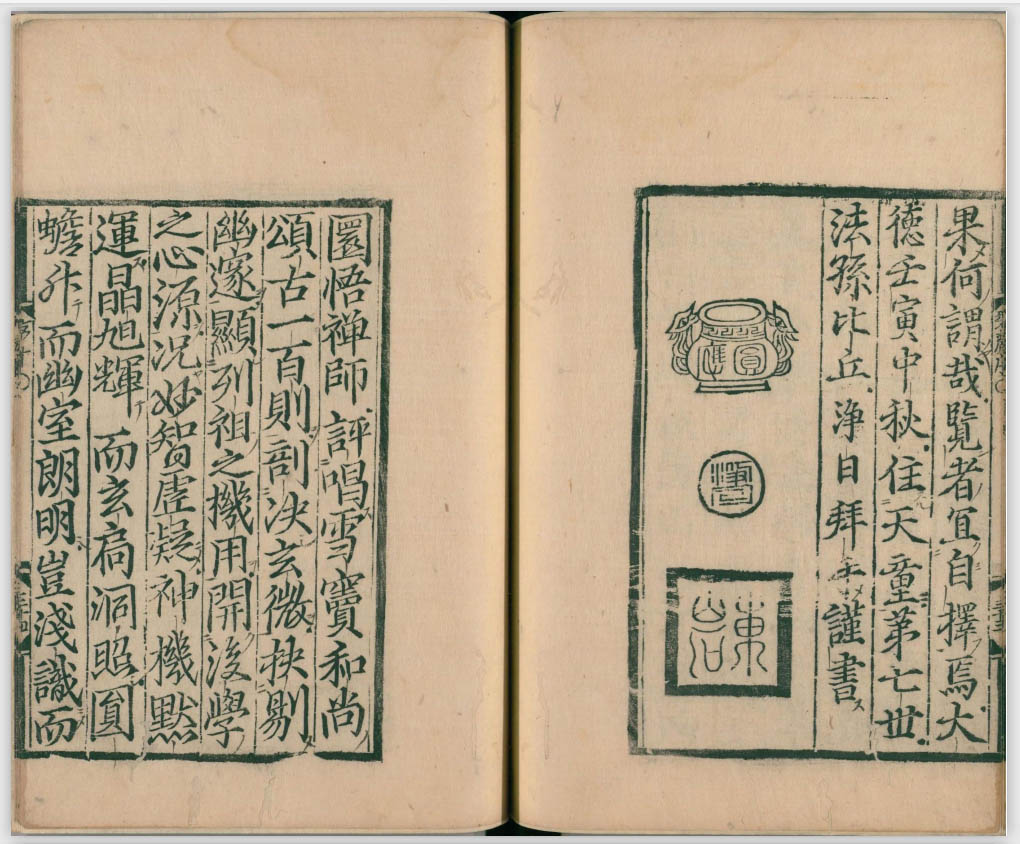 果何謂哉覽者冝自擇焉大
德壬寅中秋住天童第七世
法孫比丘淨日拜手謹書
東岩
圜悟禅師評唱雪竇和尚
頌古一百則剖決玄微抉剔
幽邃顯列祖之機用開後學
之心源況妙智虛凝神機默
運晶旭輝而玄扃洞照圓
蟾升而幽室朗明豈淺識而